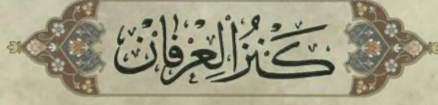 كَنْزُالْعِرْفَانْ